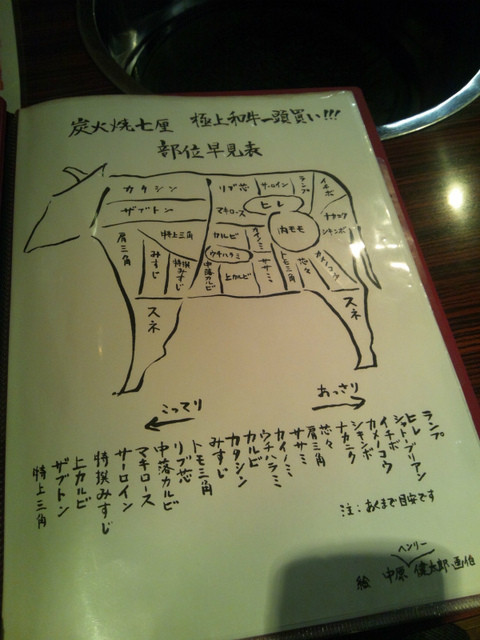 炭火焼七厘 極上和牛一頭買い!!!
部位早見表
カタシン
リブ芯
サーロイン
ランプ
イチボ
ザブトン
マキロース
ヒレ
ナカニク
シキンボ
肩三角
特上三角
カルビ
カイノミ
内モモ
みすじ
特撰みすじ
ウチハラミ
中落カルビ
上カルビ
ササミ
トモ三角
芯々
カメノコウ
スネ
スネ
こってり
あっさり
ランプ
ヒレ
シャトーブリアン
イチボ
カメノコウ
シキンボ
ナカニク
芯々
肩三角
ササミ
カイノミ
ウチハラミ
カルビ
カタシン
みすじ
トモ三角
リブ芯
中落カルビ
マキロース
サーロイン
特撰みすじ
上カルビ
ザブトン
特上三角
注:あくまで目安です
ヘンリー
絵 中原 健太郎 画伯